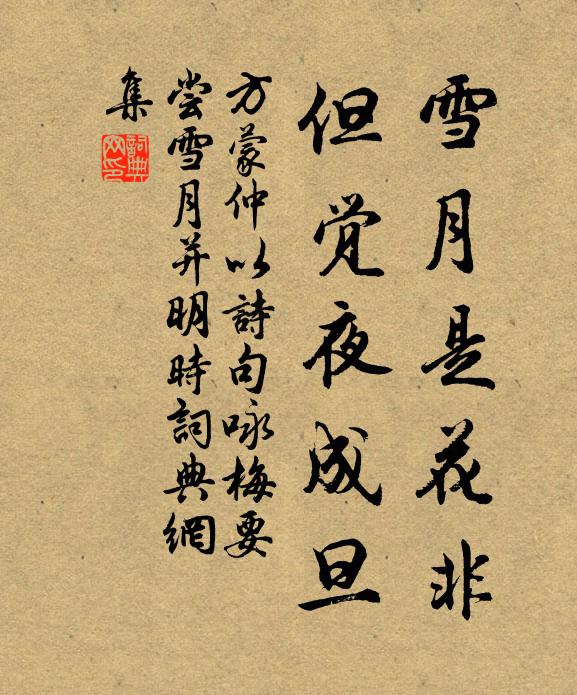 雪月是花非
但觉夜成旦
方蒙仲以詩句咏梅要
尝雪月并明時詞典網
集
詞典
网印